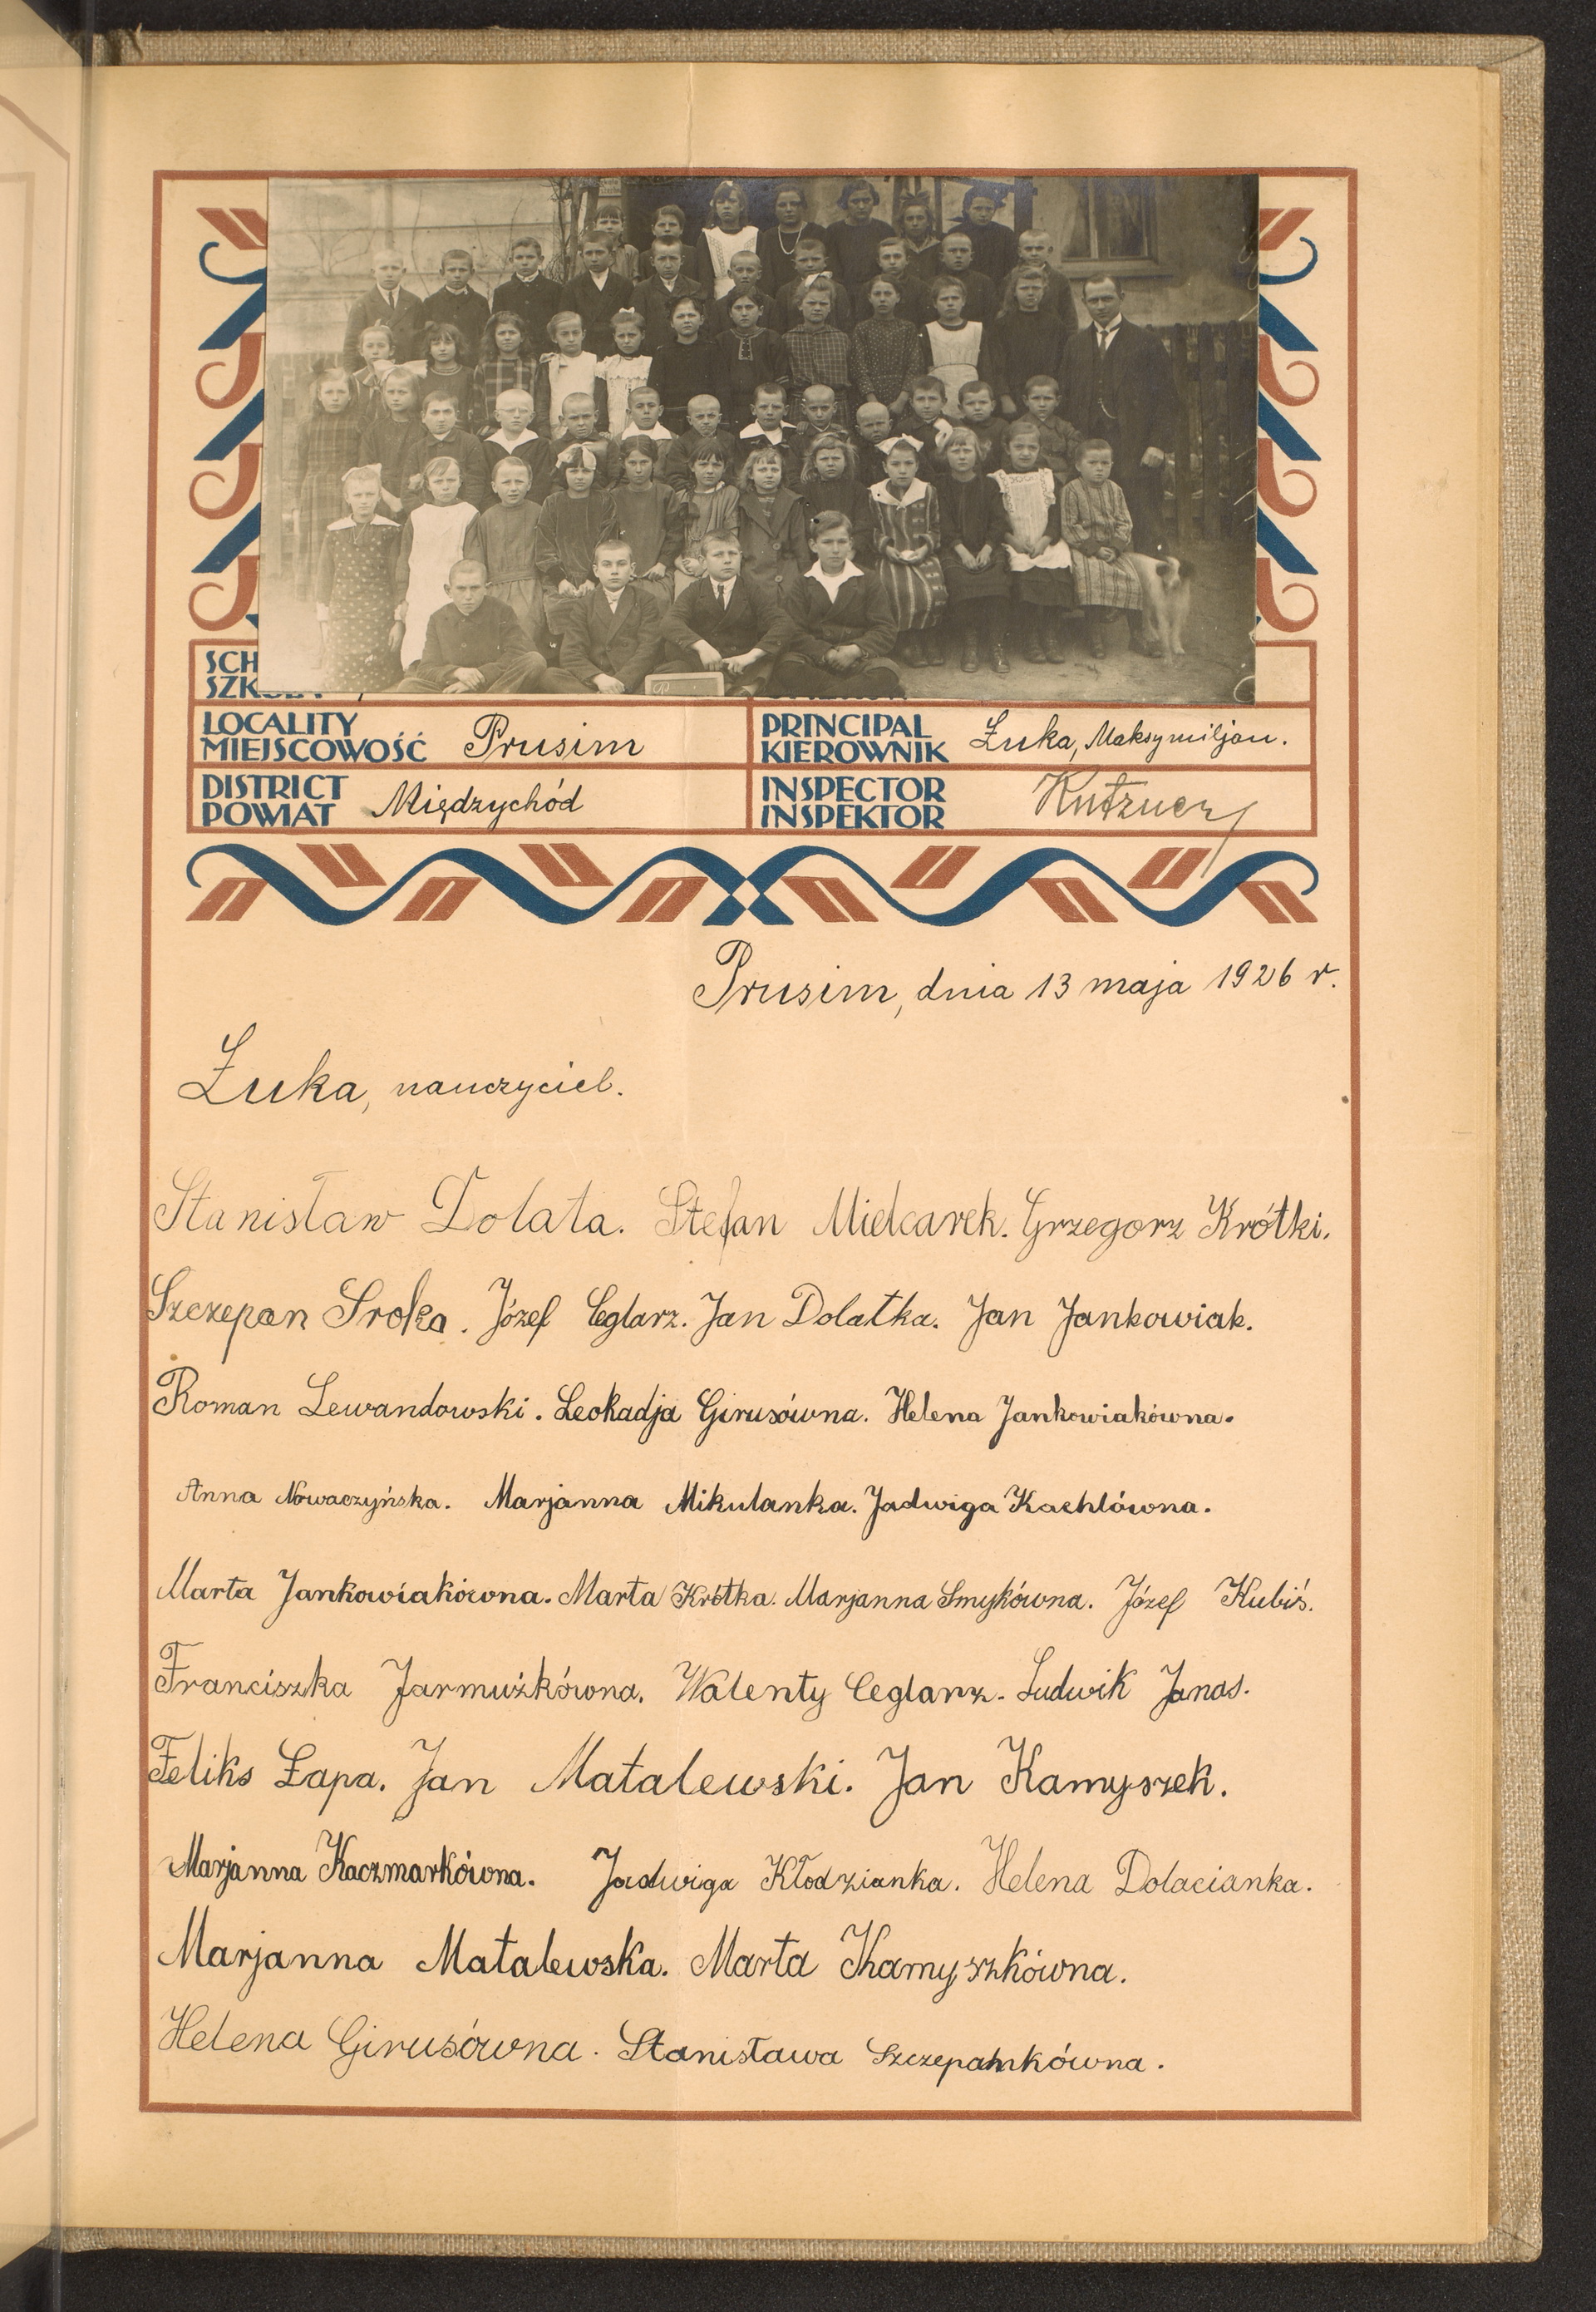 SCH
SZKOŁY
LOCALITY
MIEJSCOWOŚĆ Prusim
PRINCIPAL
KIEROWNIK Żuka, Maksymiljan.
DISTRICT
POWIAT Międzychód
INSPECTOR
INSPEKTOR
Prusim, dnia 13 maja 1926 r.
Żuka, nauczyciel.
Stanisław Dolata. Stefan Mielcarek. Grzegorz Krótki.
Szczepan Sroka. Józef Ceglarz. Jan Dolatka. Jan Jankowiak.
Roman Lewandowski. Leokadja Girusówna. Helena Jankowiakówna.
Anna Nowaczyńska. Marjanna Mikulanka. Jadwiga Kachlówna.
Marta Jankowiakówna. Marta Krótka. Marjanna Smykówna. Józef Kubiś.
Franciszka Jarmużkówna. Walenty Ceglarz. Ludwik Janas.
Feliks Łapa. Jan Matalewski. Jan Kamyszek.
Marjanna Kaczmarkówna. Jadwiga Kłodzianka. Helena Dolacianka.
Marjanna Matalewska. Marta Kamyszkówna.
Helena Girusówna. Stanisława Szczepankówna.